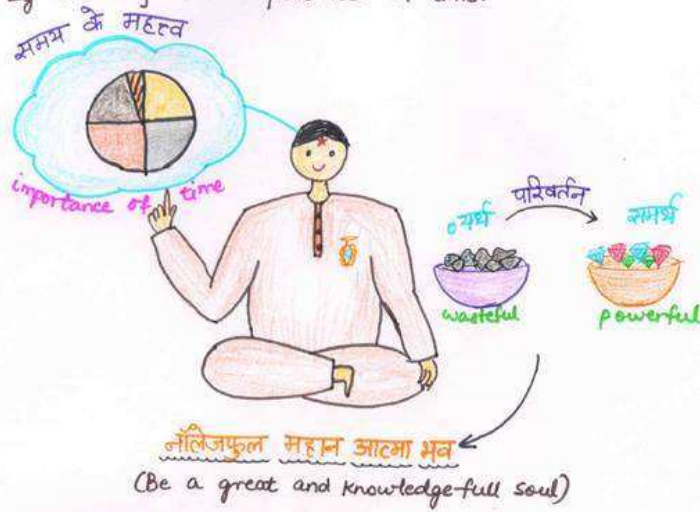 समय के महत्त्व
importance of time
व्यर्थ परिवर्तन समर्थ
wasteful powerful
नॉलेजफुल महान आत्मा भव
(Be a great and knowledge-full soul)